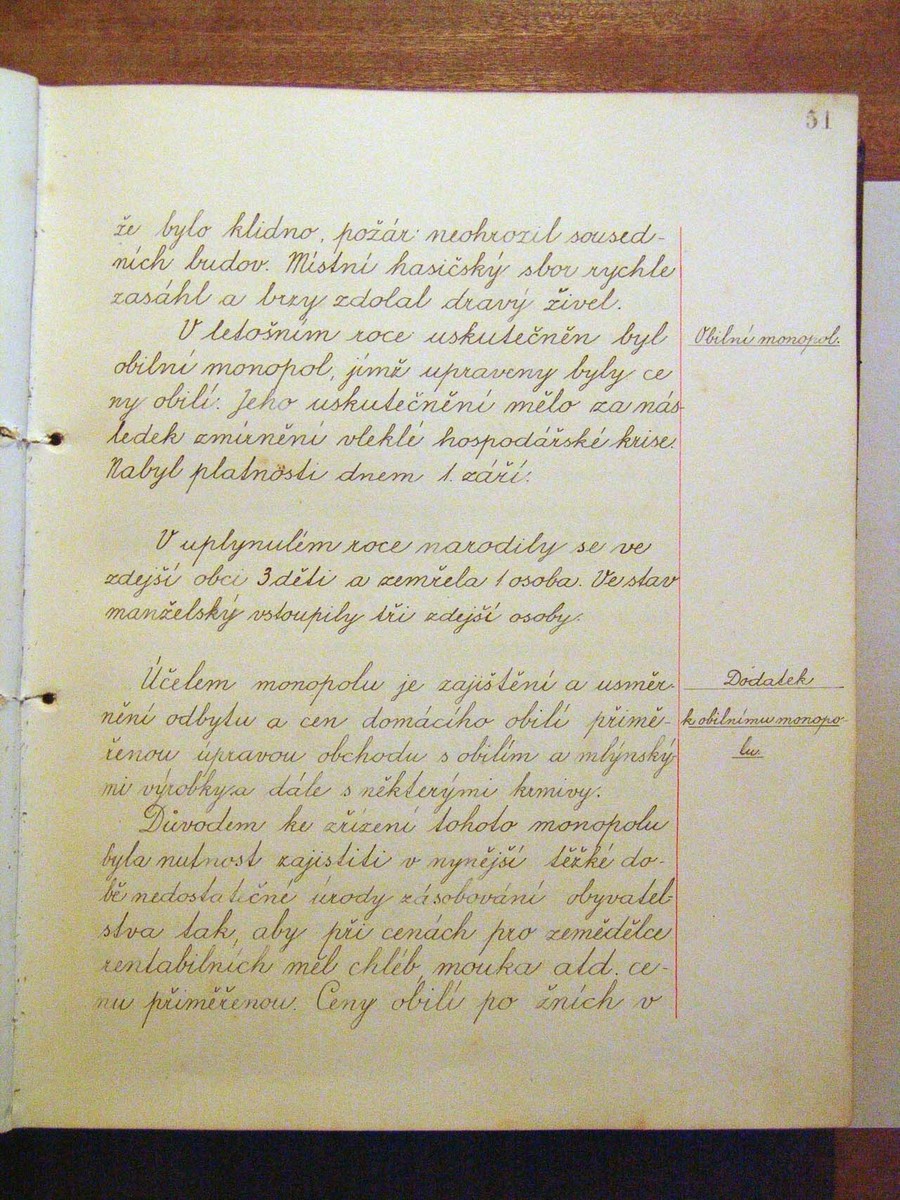 51
že bylo klidno, požár neohrozil soused-
ních budov. Místní hasičský sbor rychle
zasáhl a brzy zdolal dravý živel.
V letošním roce uskutečněn byl
Obilní monopol.
obilní monopol, jímž upraveny byly ce
ny obilí. Jeho uskutečnění mělo za nás-
ledek zmírnění vleklé hospodářské krise.
Nabyl platnosti dnem 1. září.
V uplynulém roce narodily se ve
zdejší obci 3 děti a zemřela 1 osoba. Ve stav
manželský vstoupily tři zdejší osoby.
Účelem monopolu je zajištění a usměr-
Dodatek
nění odbytu a cen domácího obilí přimě-
k obilnímu monopo-
řenou úpravou obchodu s obilím a mlýnský-
lu.
mi výrobky a dále s některými krmivy.
Důvodem ke zřízení tohoto monopolu
byla nutnost zajistiti v nynější těžké do-
bě nedostatečné úrody zásobování obyvatel-
stva tak, aby při cenách pro zemědělce
rentabilních měl chléb, mouka atd. ce-
nu přiměřenou. Ceny obilí po žních v